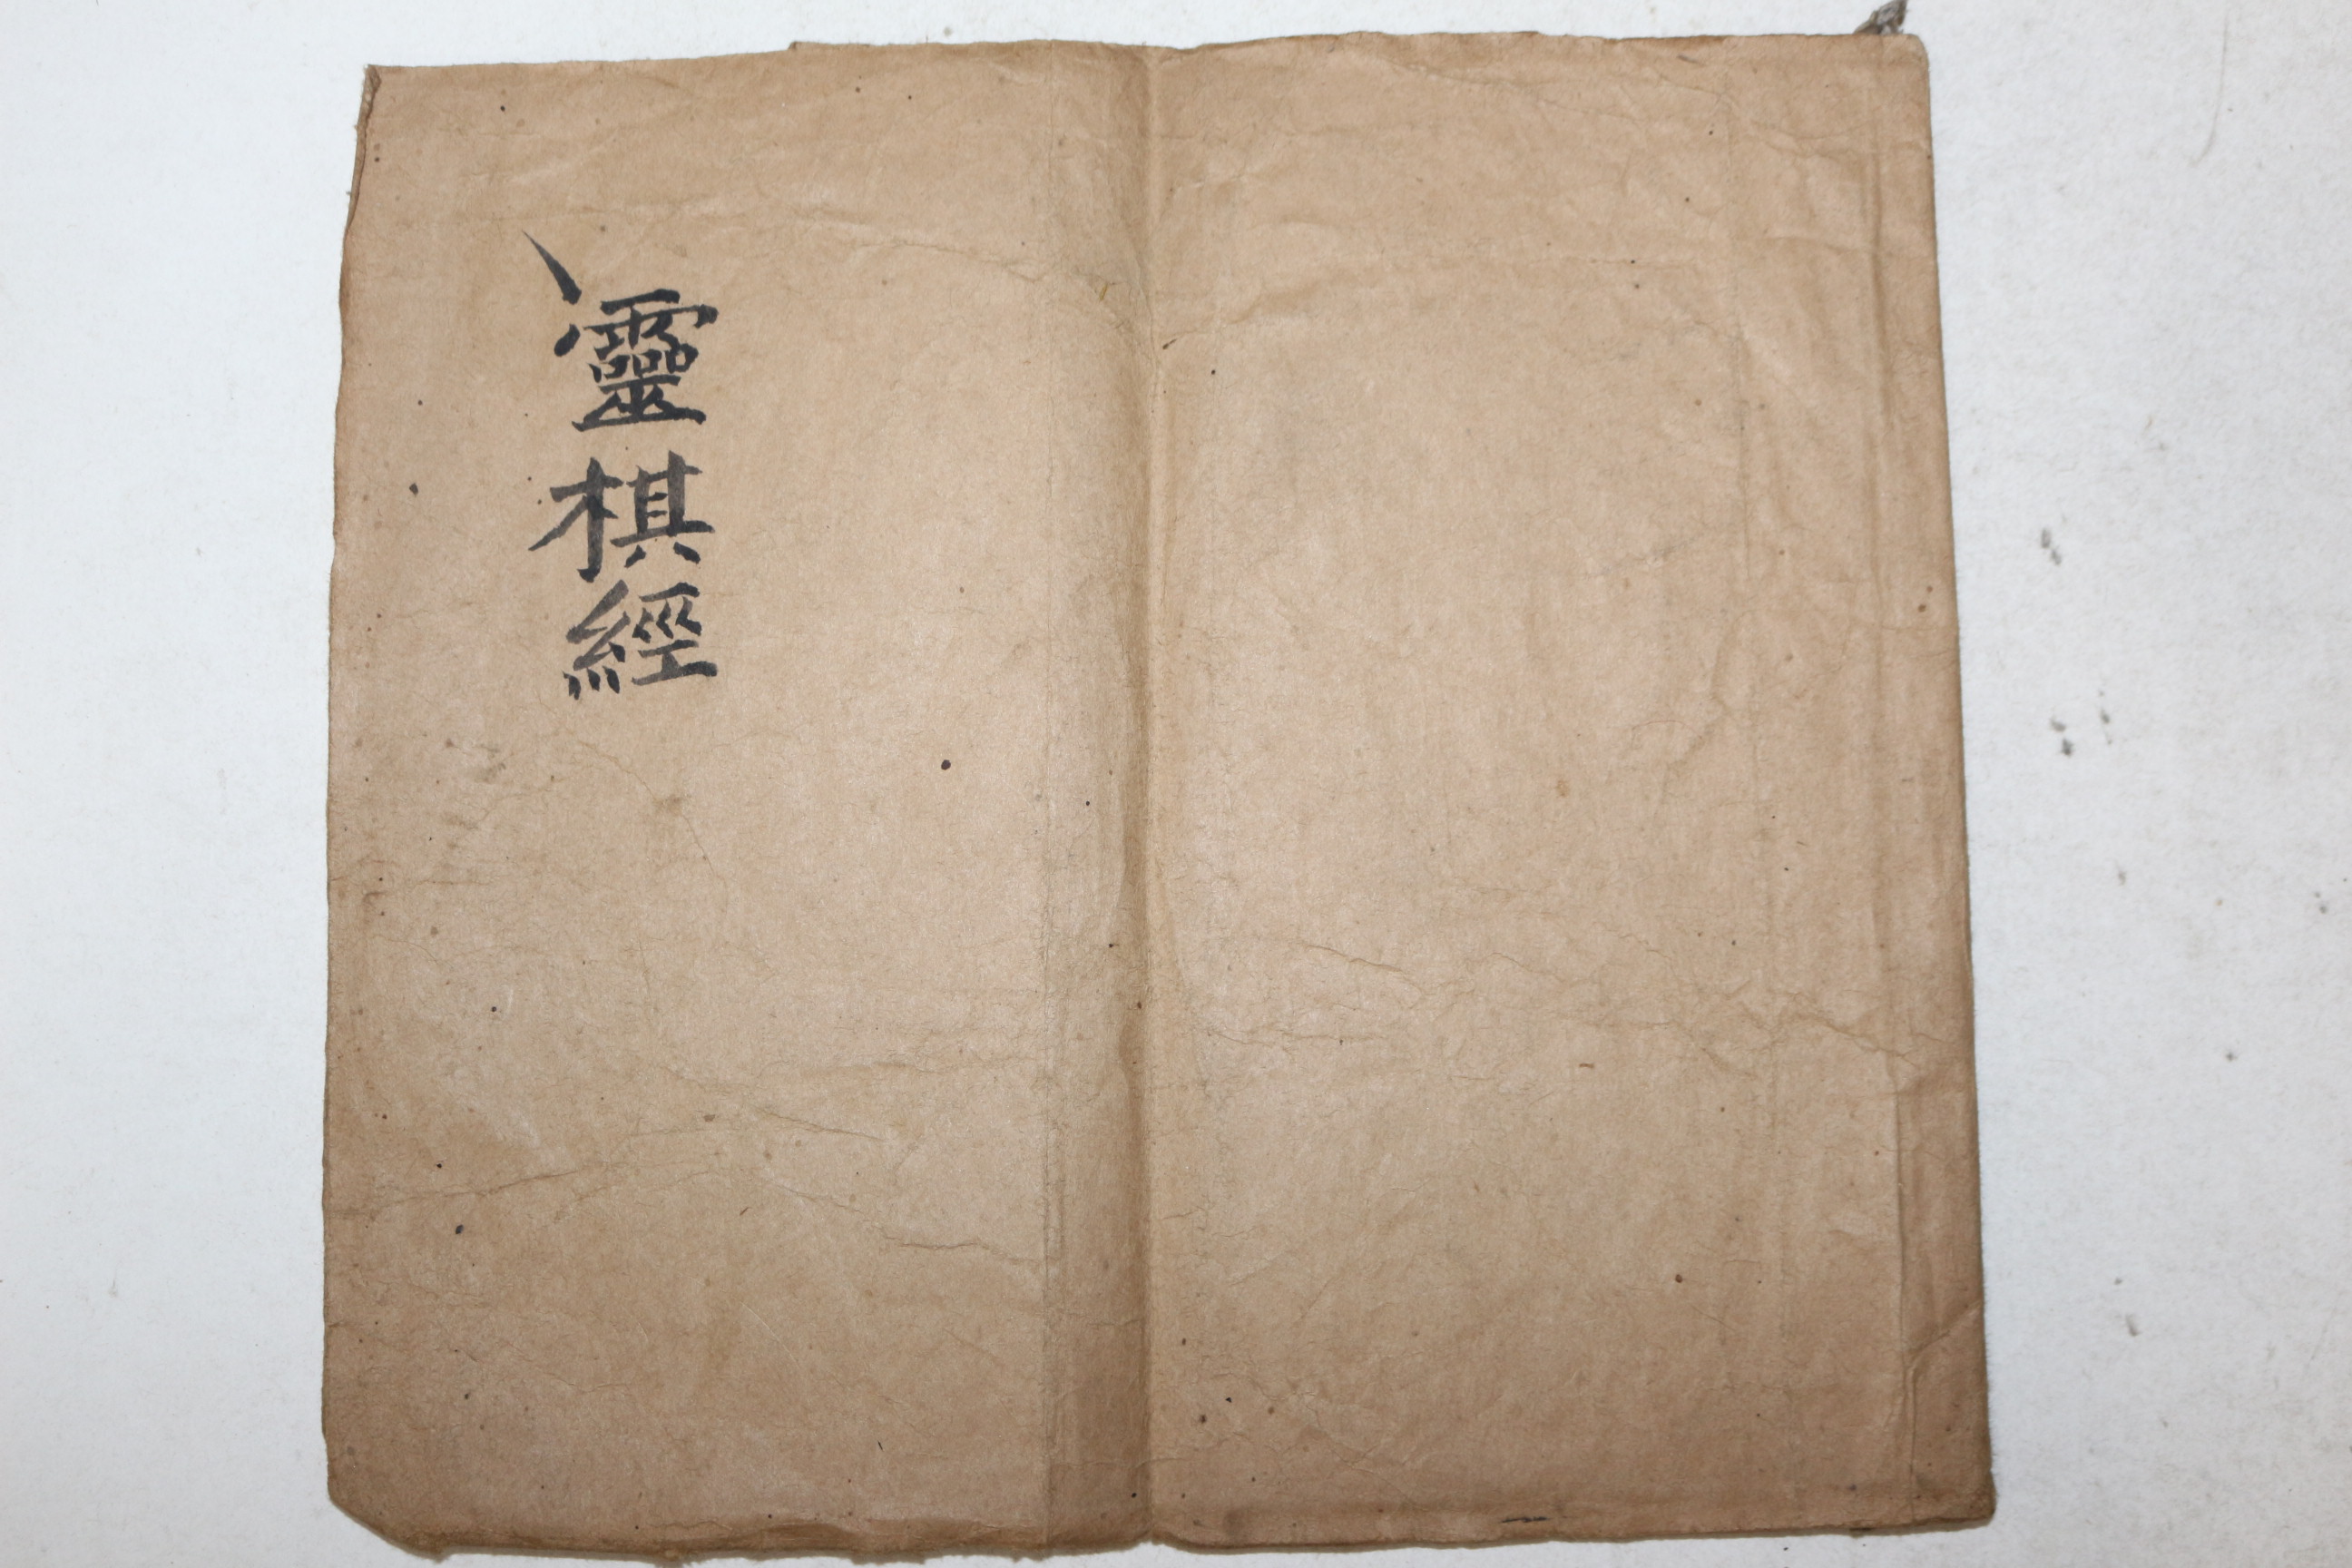 靈棋經